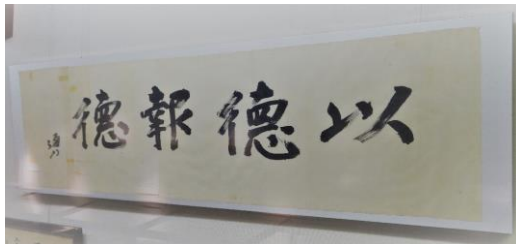 以德報德